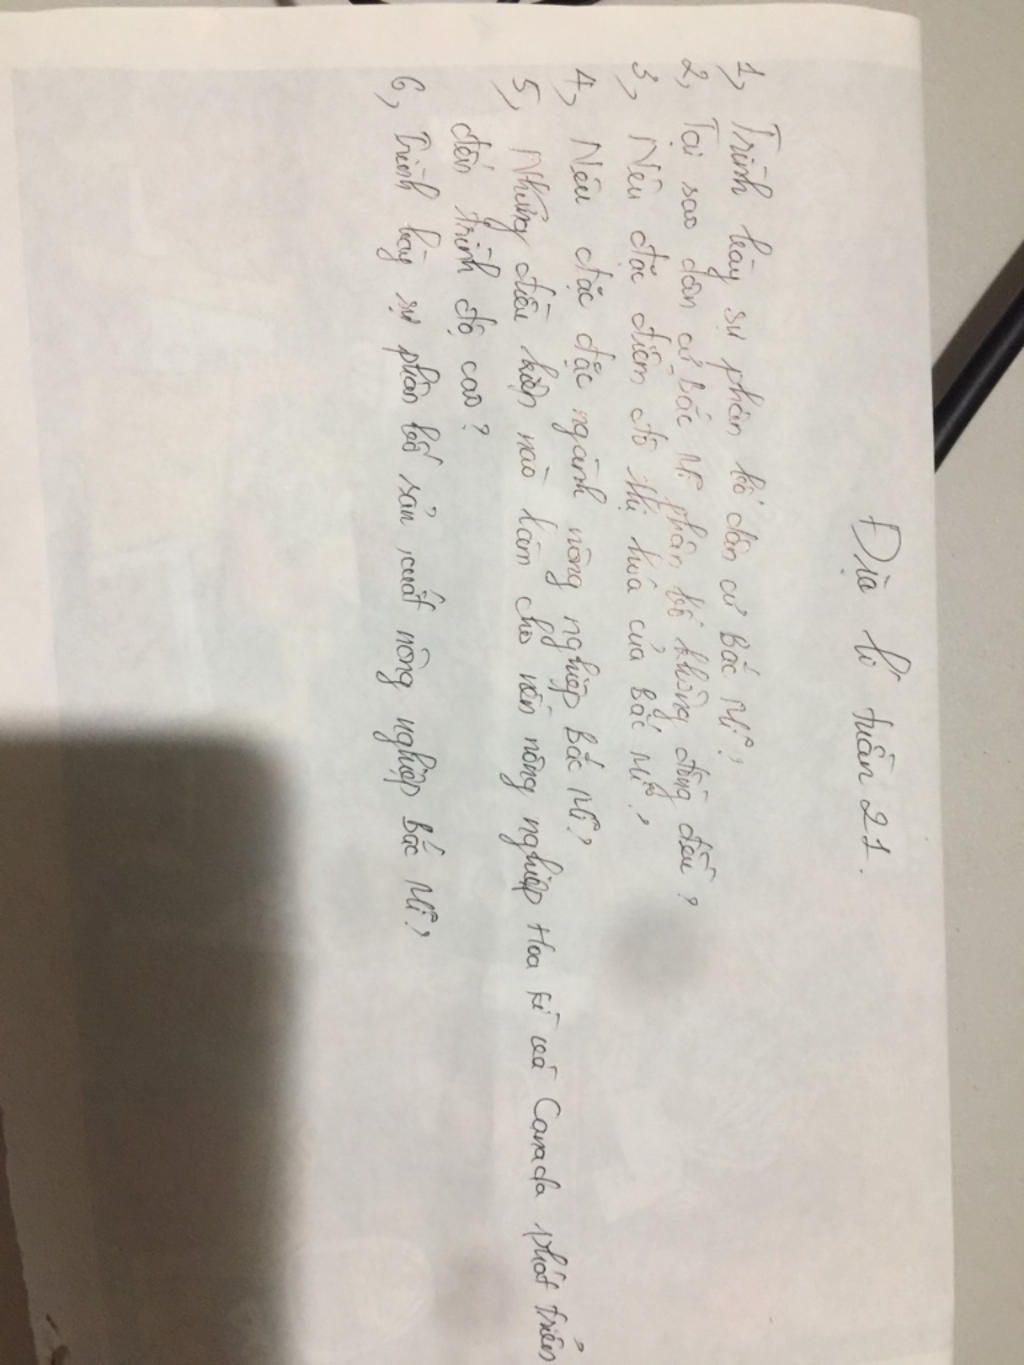 Địa lí tuần 21.
1, Trình bày sự phân bố dân cư Bắc Mĩ?
2, Tại sao dân cư Bắc Mĩ phân bố không đồng đều?
3, Nêu đặc điểm đô thị hoá của Bắc Mĩ?
4, Nêu đặc đặc ngành nông nghiệp Bắc Mĩ?
5, Những điều kiện nào làm cho nền nông nghiệp Hoa kì và Canada phát triển
đến trình độ cao?
6, Trình bày sự phân bố sản xuất nông nghiệp Bắc Mĩ?